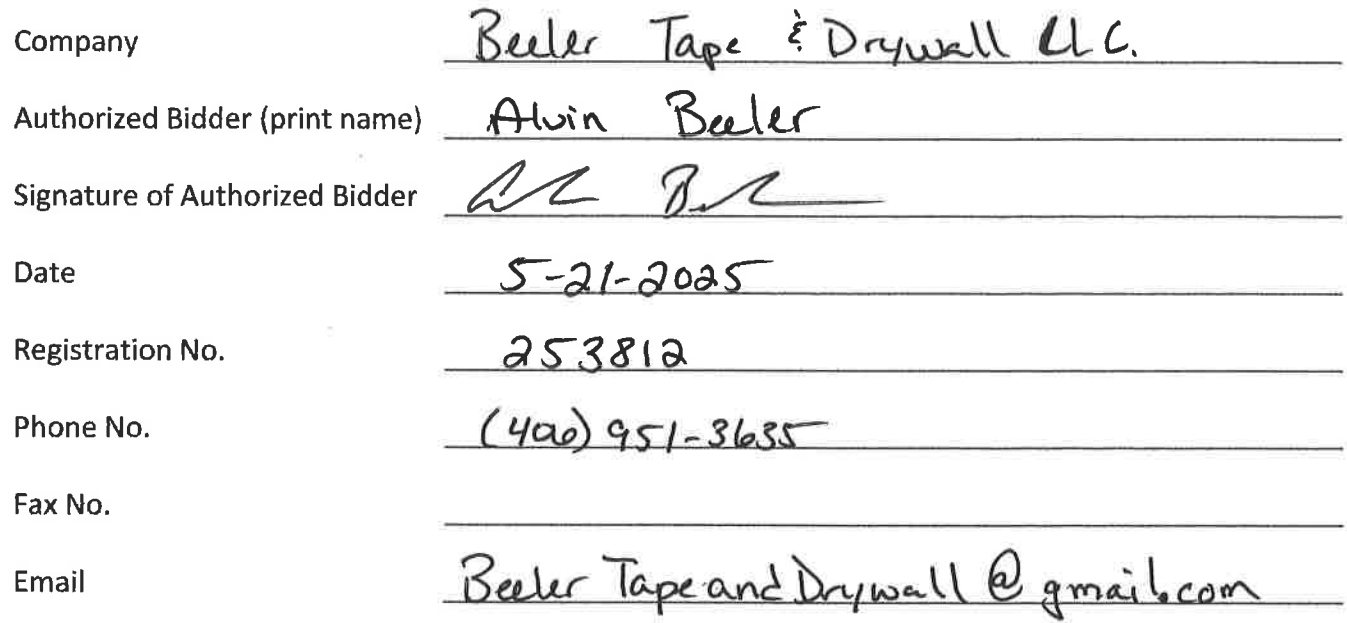 Company Beeler Tape & Drywall LLC.
Authorized Bidder (print name) Alvin Beeler
Signature of Authorized Bidder
Date 5-21-2025
Registration No. 253812
Phone No. (406) 951-3635
Fax No.
Email Beeler TapeandDrywall@gmail.com